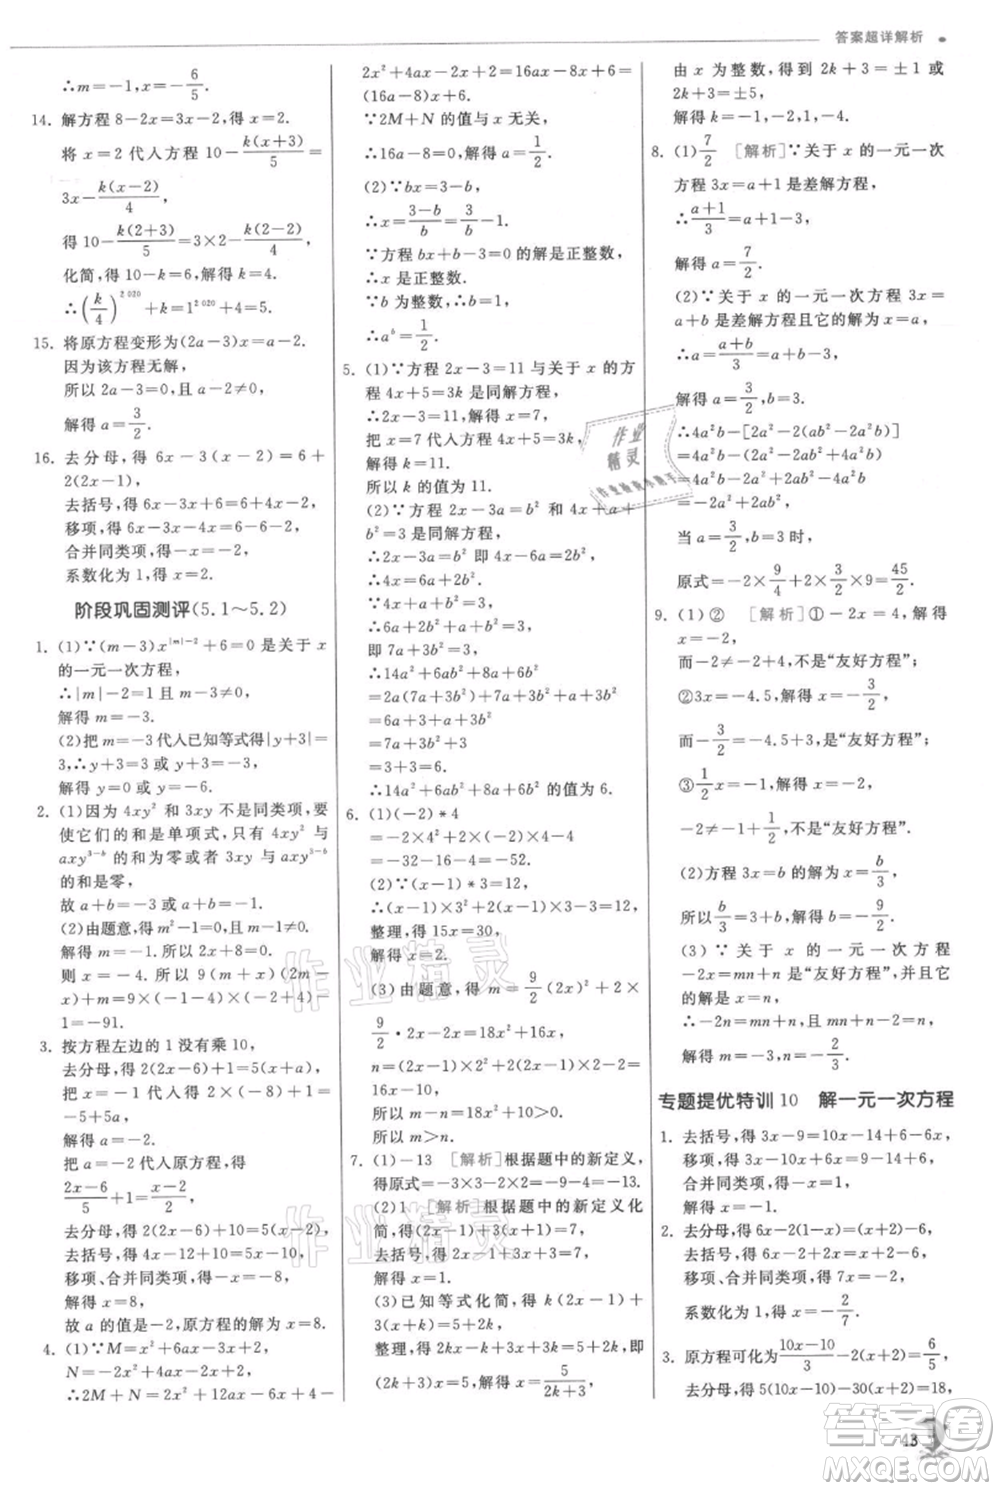 答案超详解析
∴m=-1,x=6/5.
14. 解方程8-2x=3x-2,得x=2.
将x=2代入方程10-k(x+3)/5=
3x-k(x-2)/4,
得10-k(2+3)/5=3×2-k(2-2)/4.
化简,得10-k=6,解得k=4.
∴(k/4)^2020+k=1^2020+4=5.
15. 将原方程变形为(2a-3)x=a-2.
因为该方程无解,
所以2a-3=0且a-2≠0.
解得a=3/2.
16. 去分母,得6x-3(x-2)=6+
2(2x-1),
去括号,得6x-3x+6=6+4x-2,
移项,得6x-3x-4x=6-6-2,
合并同类项,得-x=-2,
系数化为1,得x=2.
阶段巩固测评(5.1~5.2)
1. (1)∵(m-3)x^(|m|-2)+6=0是关于x
的一元一次方程,
∴|m|-2=1且m-3≠0.
解得m=-3.
(2)把m=-3代入已知等式得|y+3|=
3,∴y+3=3或y+3=-3.
解得y=0或y=-6.
2. (1)因为4xy²和3xy不是同类项,要
使它们的和是单项式,只能4xy²与
axy^(3-b)的和为零或者3xy与axy^(3-b)
的和是零,
故a=-4,b=1或a=-3,b=2.
(2)由题意,得m²-1=0且m-1≠0.
解得m=-1.所以2x+8=0.
则x=-4.所以9(5x+9m)(2m-
x)+m=9×(-1-4)×(-2+4)-
1=-91.
3. 按方程左边的1没有乘10,
去分母,得2(2x-6)+1=5(x+a),
把x=-1代入得2×(-8)+1=
5(-1+a),
解得a=-2.
把a=-2代入原方程,得
(2x-6)/5+1=(x-2)/2,
去分母,得2(2x-6)+10=5(x-2),
去括号,得4x-12+10=5x-10,
移项、合并同类项,得-x=-8,
解得x=8,
故a的值是-2,原方程的解为x=8.
4. (1)∵M=x²+6ax-3x+2,
N=-2x²+4ax-2x+2,
∴2M+N=2x²+12ax-6x+4-
2x²+4ax-2x+2=16ax-8x+6=
(16a-8)x+6.
∵2M+N的值与x无关,
∴16a-8=0,解得a=1/2.
(2)∵bx+b-3=0,
∴x=(3-b)/b=3/b-1.
∵方程bx+b-3=0的解是正整数,
∴x是正整数.
∵b为整数,∴b=1.
∴a^b=1/2.
5. (1)∵方程2x-3=11与关于x的方
程4x+5=3k是同解方程,
∴2x-3=11,解得x=7,
把x=7代入方程4x+5=3k,
解得k=11.
所以k的值为11.
(2)∵方程2x-3a=b²和4x+
a+b²=3是同解方程,
∴2x-3a=b²即4x-6a=2b²,
∴4x=6a+2b²,
∴6a+2b²+a+b²=3,
即7a+3b²=3,
∴14a²+6ab²+8a+6b²
=2a(7a+3b²)+8a+6b²
=6a+8a+6b²
=14a+6b²
=2(7a+3b²)
=6.
∴14a²+6ab²+8a+6b²的值为6.
6. (1)(-2)*4
=-2×4²+2×(-2)×4-4
=-32-16-4=-52.
(2)∵(-1)*3=x,
∴(-1)×3²+2×(-1)×3-3=x,
整理,得-18=x,
(3)由题意,得m=9/2(2x)²+2×
9/2·2x-2x=18x²+16x,
m-n=10x²+10>0.
所以m>n.
7. (1)-13 [解析]根据题中的新定义,
得原式=-3×3-2×2=-9-4=-13.
(2)1 [解析]根据题中的新定义化
简,得2(2x+1)+3(x-1)=6,
去括号,得4x+2+3x-3=6,
解得x=1.
(3)已知等式化简,得k(2x-1)+
3(x+k)=5+2k,
整理,得(2k+3)x=5,
解得x=5/(2k+3),
由x为整数,得到2k+3=±1或
2k+3=±5,
解得k=-1,-2,1,-4.
8. (1)7/2 [解析]∵关于x的一元一次
方程3x=a+1是差解方程,
∴(a+1)/3=a+1-3,
解得a=7/2.
(2)∵关于x的一元一次方程3x=
a+b是差解方程且它的解为x=a,
∴a=(a+b)/3=a+b-3.
解得a=3/2,b=3.
∴4a²b-[2a²-2(ab²-2a²b)]
=4a²b-(2a²-2ab²+4a²b)
=4a²b-2a²+2ab²-4a²b
=-2a²+2ab²,
当a=3/2,b=3时,
原式=-2×9/4+2×3/2×9=45/2.
9. (1)② [解析]①-2x=4,解得
x=-2,
而-2≠-2+4,不是“友好方程”;
②3x=-4.5,解得x=-3/2,
而-3/2=-4.5+3,是“友好方程”;
③1/2x=-1,解得x=-2,
-2≠-1+1/2,不是“友好方程”;
故答案是②.
(2)方程3x=b的解为x=b/3.
所以b/3=3+b.解得b=-9/2.
(3)∵关于x的一元一次方程
-2x=mn+n是“友好方程”,并且它
的解是x=n,
∴-2n=mn+n,且mn+n-2=n,
解得m=-3,n=-2/3.
专题提优特训10 解一元一次方程
1. 去括号,得3x-9=10x-14+6-6x,
移项,得3x-10x+6x=-14+6+9,
合并同类项,得-x=1,
解得x=-1.
2. 去分母,得6x-2(1-x)=x+2-6,
去括号,得6x-2+2x=x+2-6,
移项、合并同类项,得7x=-2,
系数化为1,得x=-2/7.
3. 原方程可化为(10x-10)/3-(10x+20)/2=6/5,
去分母,得5(10x-10)-30(x+2)=18,
43
作业精灵
答案圈
MXQE.COM